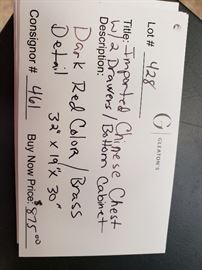 G | GLEATON'S
Lot # 428
Title: Imported Chinese Chest
W/ 2 Drawers / Bottom Cabinet
Description:
Dark Red Color / Brass
Detail
32" x 19" x 30"
Consignor # 461 Buy Now Price: $875.00